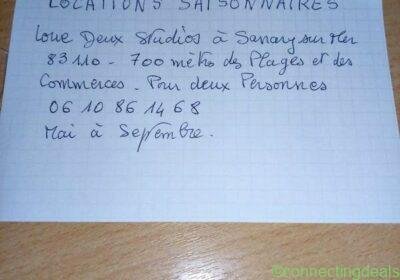 LOCATIONS SAISONNAIRES
Loue Deux Studios à Sanary sur Mer
83110 - 700 mètres des Plages et des
Commerces - Pour deux Personnes
06 10 86 14 68
Mai à Septembre.
©connectingdeals